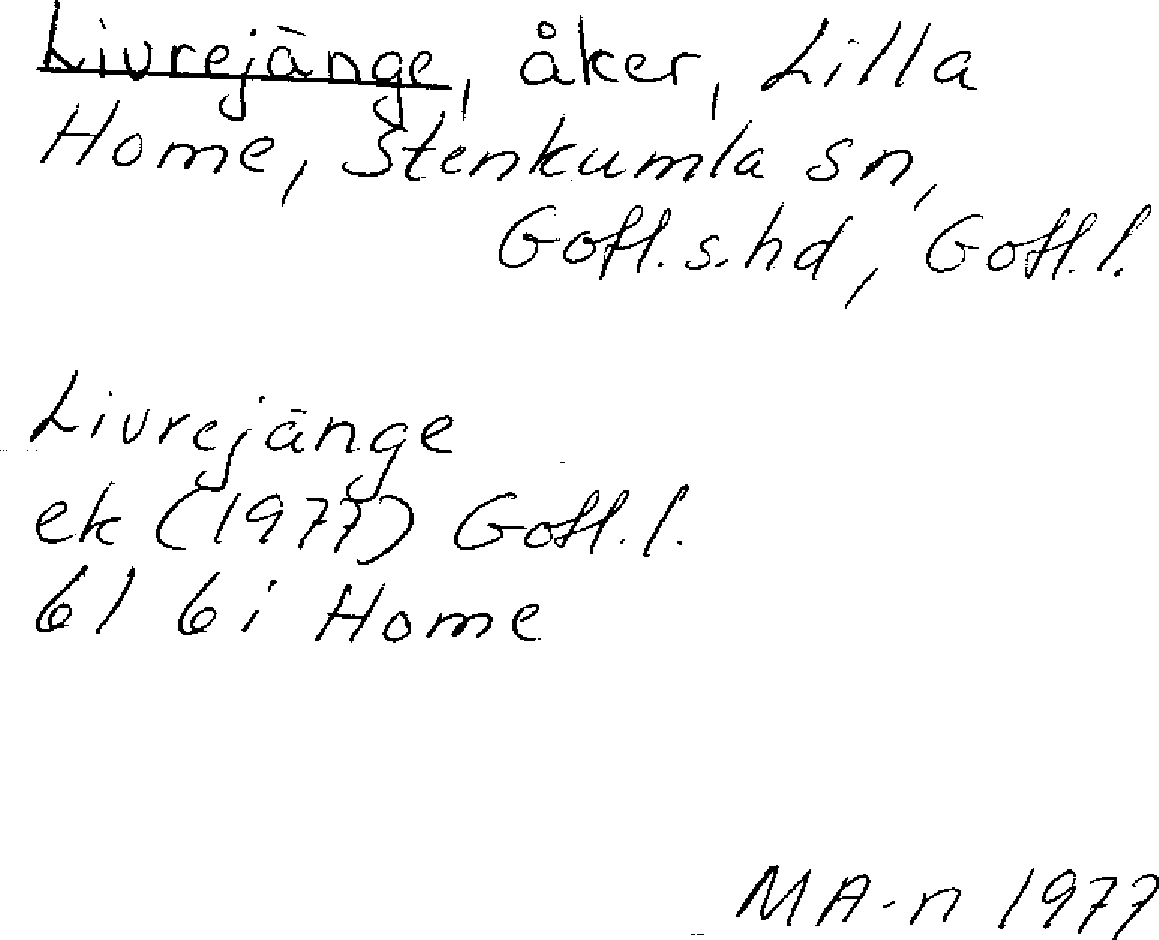 Livrejänge, åker, Lilla
Home, Stenkumla sn,
Gotl. s. hd, Gotl. l.
Livrejänge
ek (1977) Gotl. l.
61 6i Home
MA-n 1977